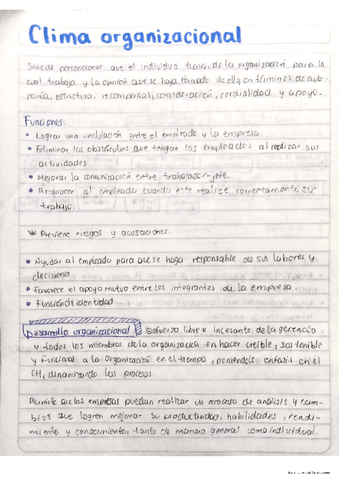 Clima organizacional
Son las percepciones que el individuo tienen de la organización para la
cual trabaja y la opinión que se haya formado de ella en términos de auto-
nomía, estructura, recompensas, consideración, cordialidad y apoyo.
Funciones:
Lograr una vinculación entre el empleado y la empresa.
Eliminar los obstáculos que tengan los empleados al realizar sus
actividades.
Mejorar la comunicación entre trabajador-jefe.
Reconocer al empleado cuando este realize correctamente su
trabajo.
* Previene riesgos y acusaciones.
Ayudar al empleado para que se haga responsable de sus labores y
decisiones
Favorece el apoyo mutuo entre los integrantes de la empresa
Función de identidad
Desarrollo organizacional Esfuerzo libre e incesante de la gerencia
y todos los miembros de la organización en hacer creíble, sostenible
y funcional a la organización en el tiempo, poniéndole énfasis en el
CH, dinamizando los procesos.
Permite que las empresas puedan realizar un proceso de análisis y cam-
bios que logren mejorar su productividad, habilidades, rendi-
miento y conocimiento, tanto de manera general como individual.